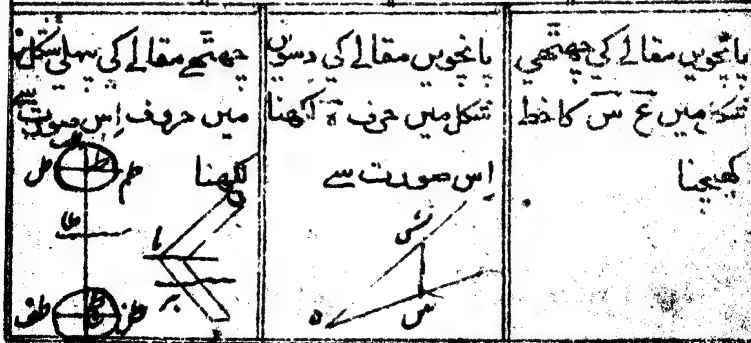 پانچویں مقالے کی چھٹھی
شکل میں عٓ سٓ کا خط
کھینچنا
پانچویں مقالے کی دسویں
شکل میں حرف ہٓ لکھنا
اِس صورت سے
ش
س
ہ
چھٹھے مقالے کی پہلی شکل
میں حروف اِس صورت سے
لکھنا
طل
طم
ط
طف
طز